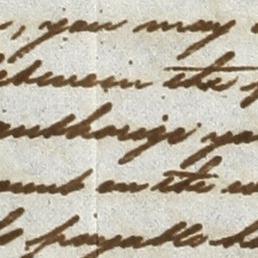 , you may
between the
authorize you
on the
payable